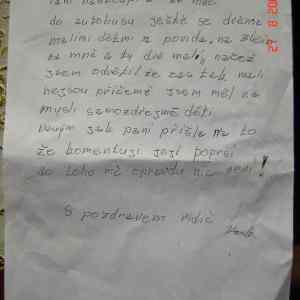 do autobusu ještě se dvěma
malími dětmi
na mně a ty dvě malý, načež
jsem odvětil že zas tak malí
nejsou přičemž jsem měl na
mysli samozdřejmě děti
jak paní přišla na to
že komentuji její poprsí
do toho mě opravdu nic není!
S pozdravem řidič
27 8 20